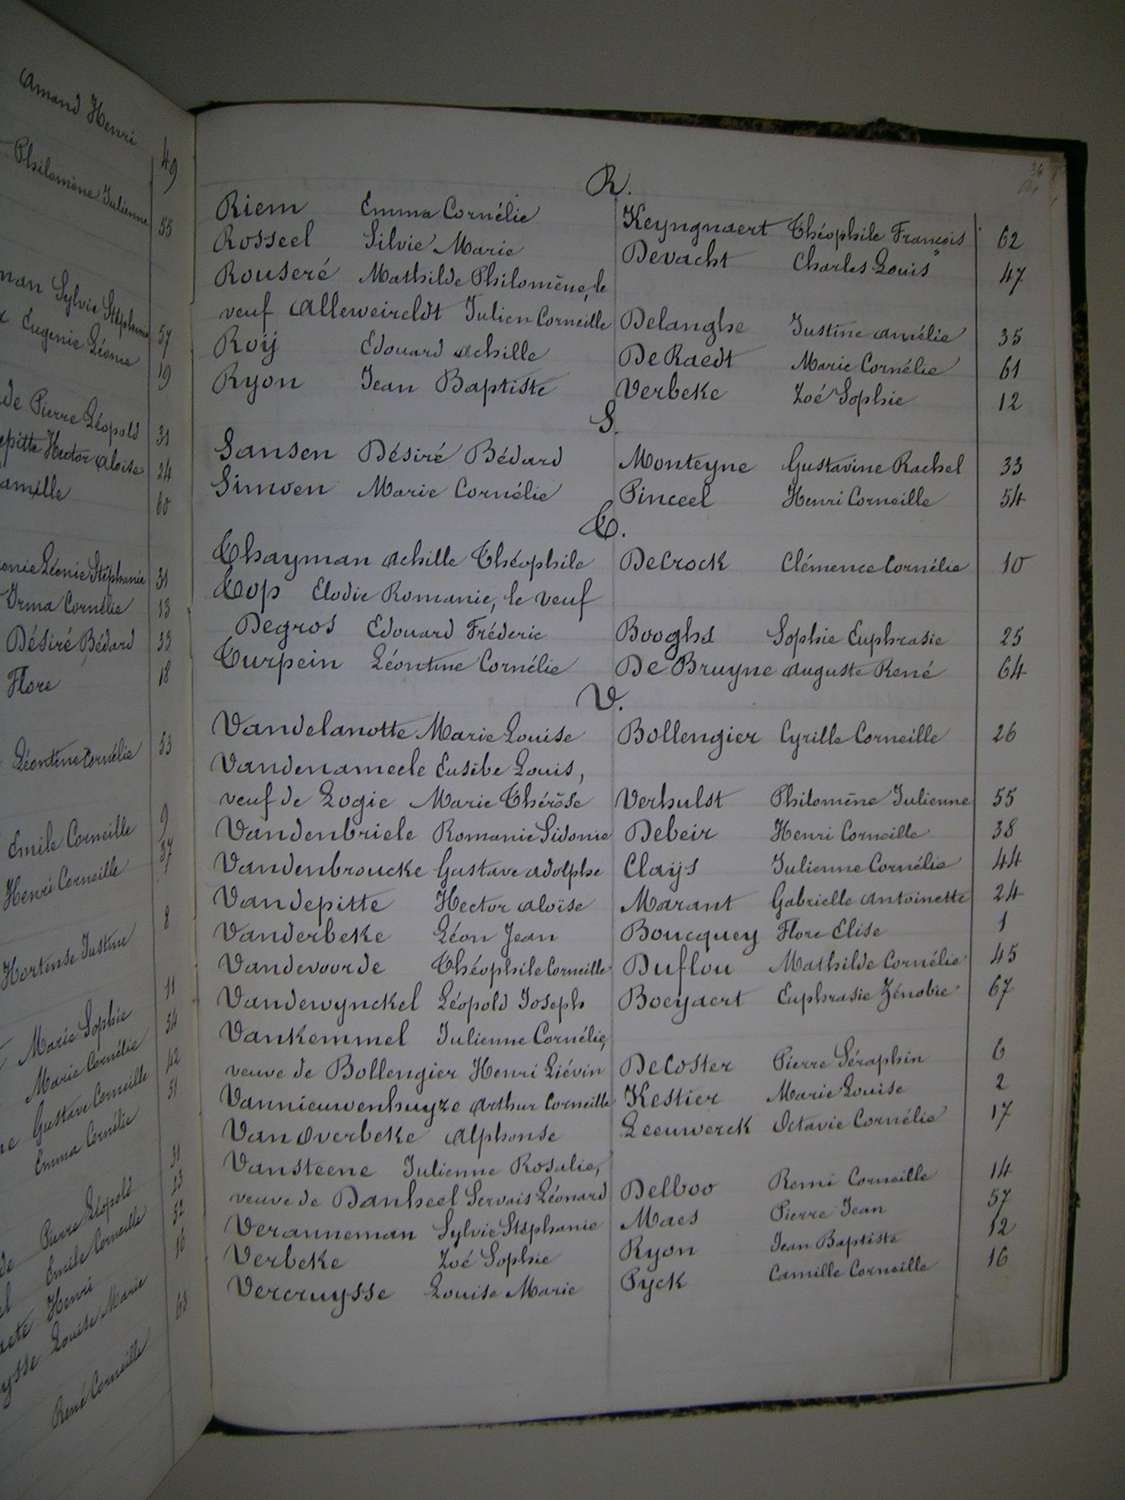 Amand Henri 49
Philomène Julienne 55
man Sylvie Stéphanie 57
Eugenie Léonie 19
de Pierre Léopold 31
epitte Hector Aloïse 24
amille 60
onie Léonie Stéphanie 31
Irma Cornélie 13
Désiré Bédard 33
Flore 18
Léontine Cornélie 53
Emile Corneille 9
Henri Corneille 37
Hortense Justine 8
Marie Sophie 11
Marie Cornélie 54
Gustave Corneille 42
Emma Cornélie 51
Pierre Léopold 31
Emile Corneille 23
Henri 52
ysse Louise Marie 16
René Corneille 63
R.
Riem Emma Cornélie Keyngnaert Théophile François 62
Rosseel Silvie Marie Devacht Charles Louis 47
Rouseré Mathilde Philomène, le
veuf Alleweireldt Julien Corneille Delanghe Justine Amélie 35
Roij Edouard Achille De Raedt Marie Cornélie 61
Ryon Jean Baptiste Verbeke Zoé Sophie 12
S.
Sansen Désiré Bédard Monteyne Gustavine Rachel 33
Simoen Marie Cornélie Pinceel Henri Corneille 54
T.
Thayman Achille Théophile DeCrock Clémence Cornélie 10
Top Elodie Romanie, le veuf
Degros Edouard Fréderic Booghs Sophie Euphrasie 25
Turpein Léontine Cornélie De Bruyne Auguste René 64
V.
Vandelanotte Marie Louise Bollengier Cyrille Corneille 26
Vandenameele Eusèbe Louis,
veuf de Logie Marie Thérèse Verhulst Philomène Julienne 55
Vandenbriele Romanie Sidonie Debeir Henri Corneille 38
Vandenbroucke Gustave Adolphe Claijs Julienne Cornélie 44
Vandepitte Hector Aloïse Marant Gabrielle Antoinette 24
Vanderbeke Léon Jean Boucquey Flore Elise 1
Vandevoorde Théophile Corneille Duflou Mathilde Cornélie 45
Vandewynckel Léopold Joseph Boeijaert Euphrasie Zénobie 67
Vankemmel Julienne Cornélie,
veuve de Bollengier Henri Liévin DeCoster Pierre Séraphin 6
Vannieuwenhuyze Arthur Corneille Kestier Marie Louise 2
VanOverbeke Alphonse Leeuwerck Octavie Cornélie 17
Vansteene Julienne Rosalie,
veuve de Danheel Servais Léonard Delboo Remi Corneille 14
Veranneman Sylvie Stéphanie Maes Pierre Jean 57
Verbeke Zoé Sophie Ryon Jean Baptiste 12
Vercruysse Louise Marie Pyck Camille Corneille 16